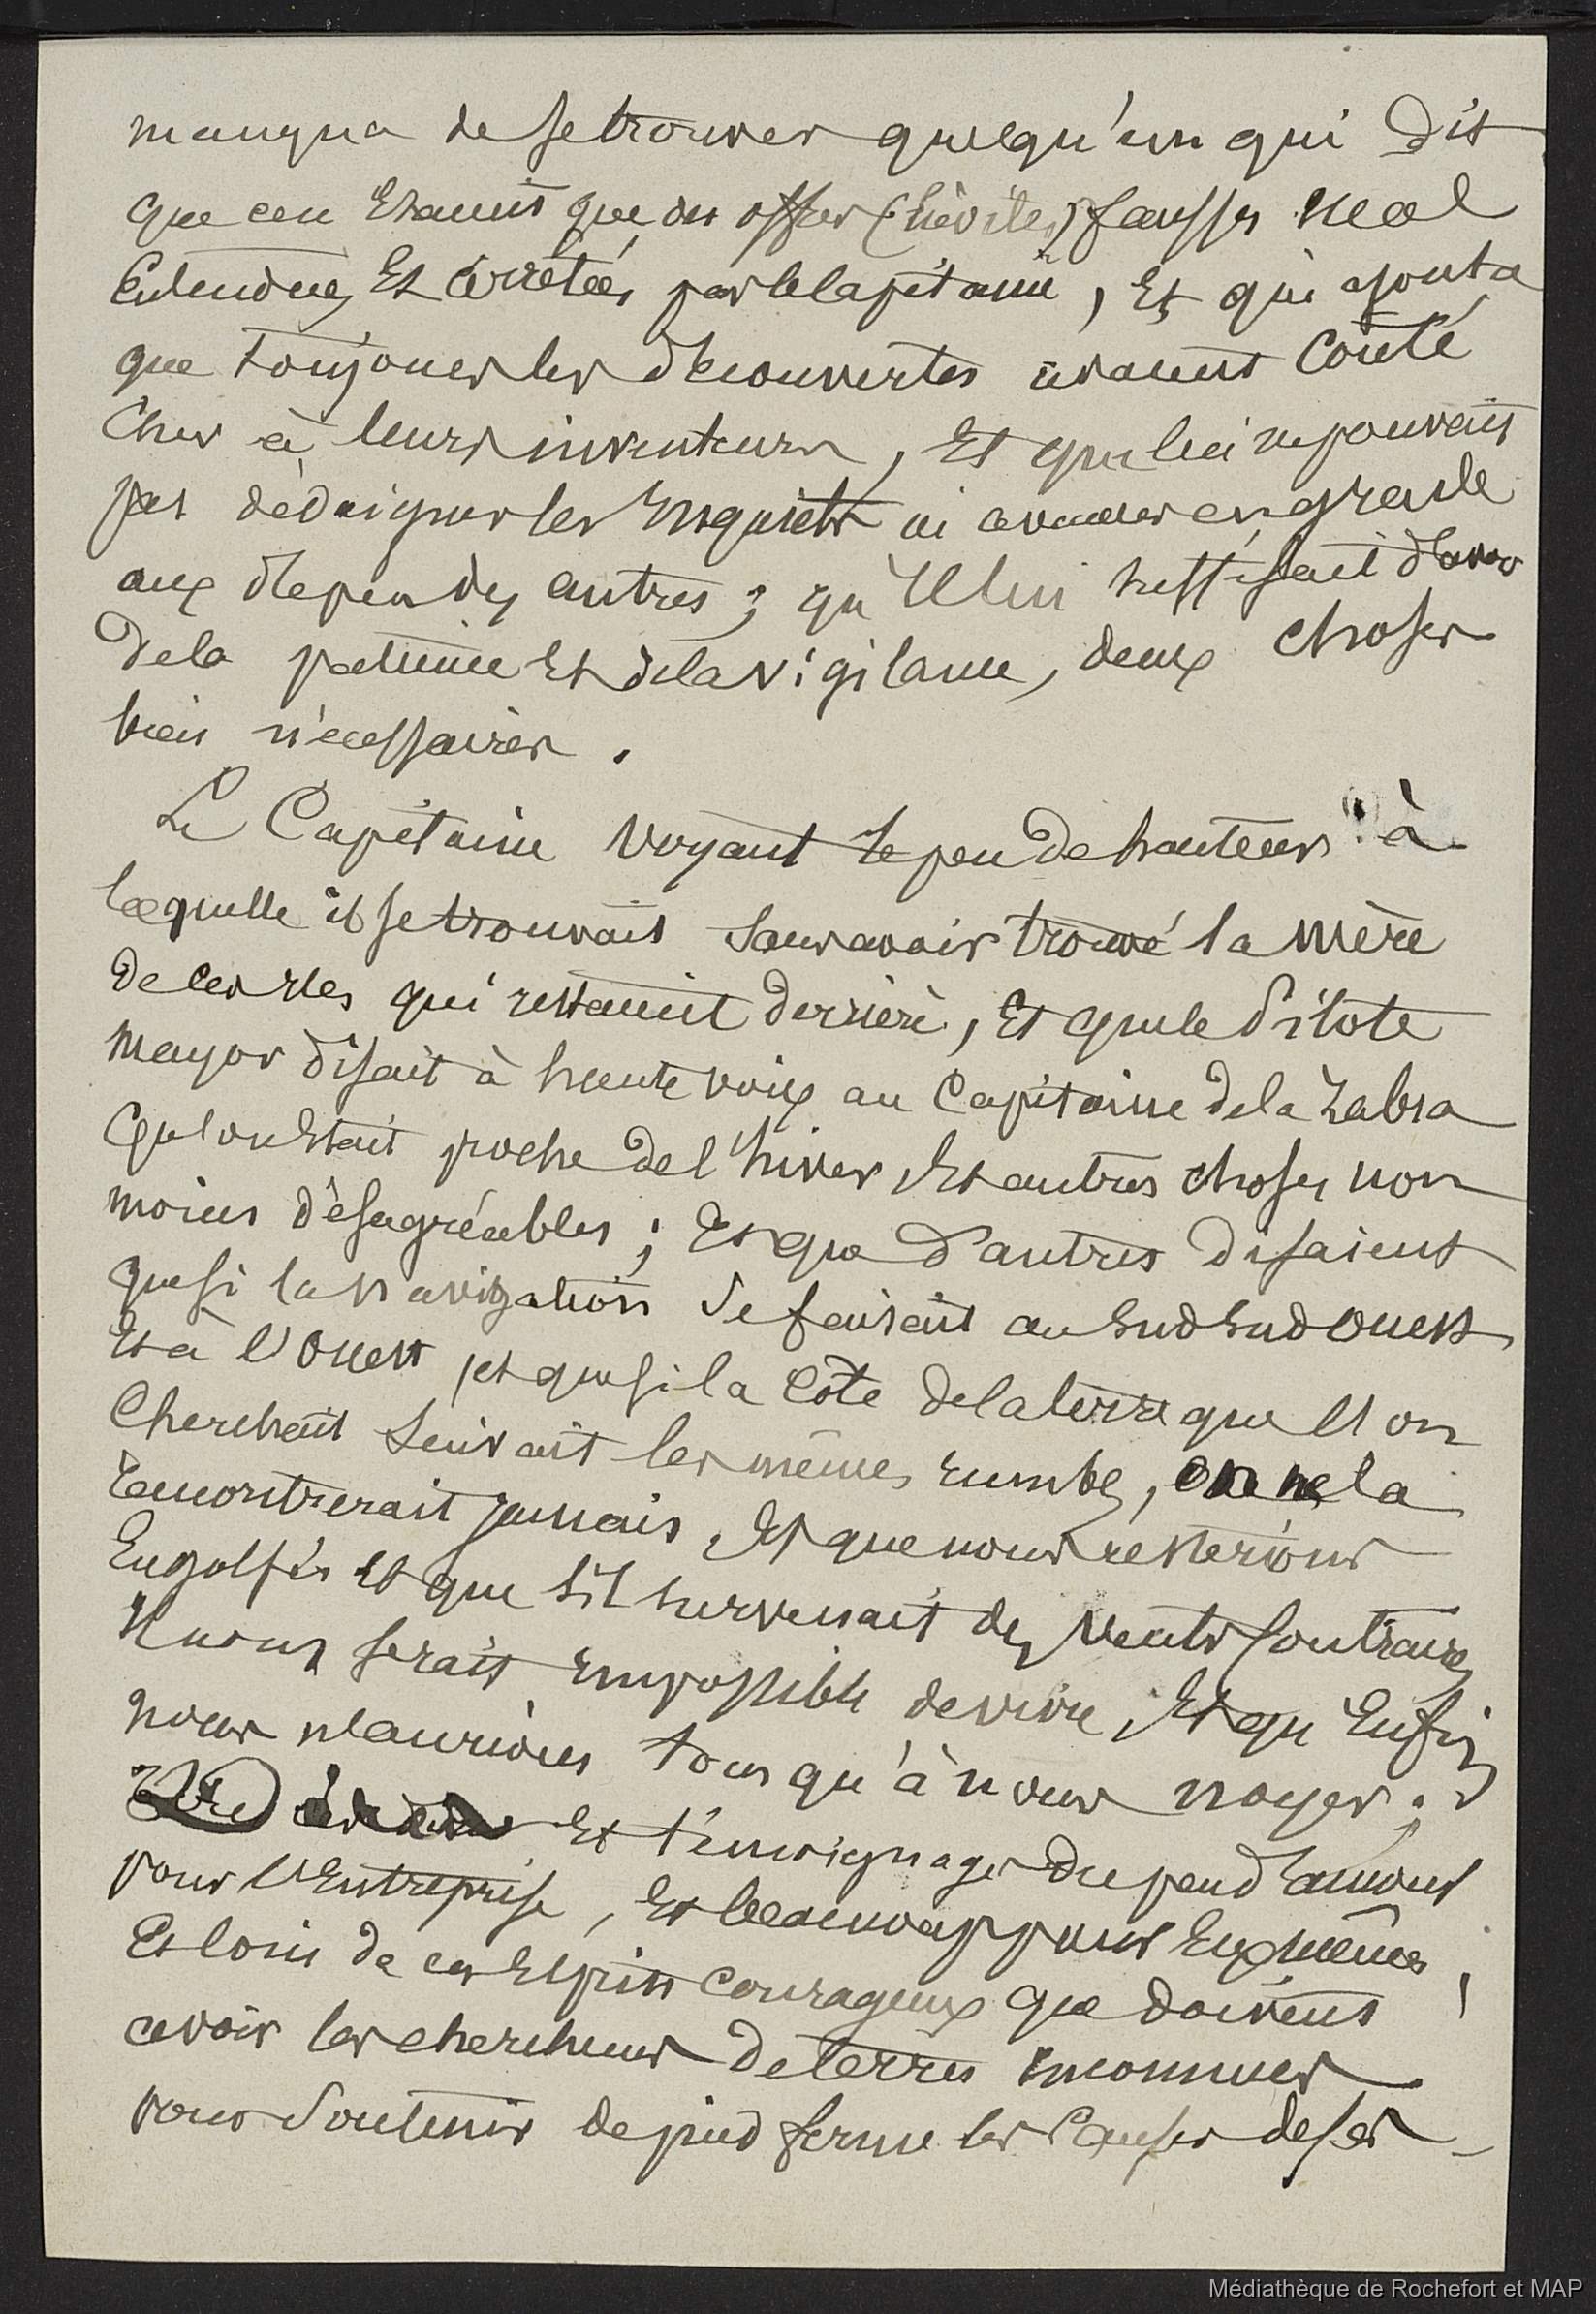 manqua de se trouver quelqu'un qui dit
que ceu étaient que des offres (hévites) fausses mal
Entendues Et arrêtées par le Capitaine, Et qui ajouta
que toujours les découvertes avaient Couté
Cher à leurs inventeurs, Et que lui ne pouvait
pas dédaigner les Enquiets ni avancer en grade
aux dépens des autres ; qu'Il lui suffisait d'avoir
de la patience Et de la vigilance, deux choses
bien nécessaires.
Le Capitaine voyant le peu de hauteur à
laquelle il se trouvait sans avoir trouvé la mère
de ces îles qui restaient derrière, Et que le Pilote
mayor disait à haute voix au Capitaine de la Zabra
Que l'on Etait proche de l'hiver, Et autres choses non
moins désagréables ; Et que d'autres disaient
que si la navigation se faisait au Sud Sud Ouest
Et à l'Ouest, et que si la Côte de la terre que l'on
Cherchait Suivait les mêmes rumbs, on ne la
rencontrerait jamais, Et que nous resterions
Engolfés Et que s'il survenait des vents Contraires
Il nous serait impossible de vivre, Et qu'Enfin
nous n'aurions tous qu'à nous noyer ;
Et témoignages du peu d'amour
pour l'Entreprise, Et beaucoup pour Eux mêmes,
Et loin de ces Esprits Courageux que doivent
avoir les chercheurs de terres inconnues
pour Soutenir de pied ferme les Causes de ses-
Médiathèque de Rochefort et MAP